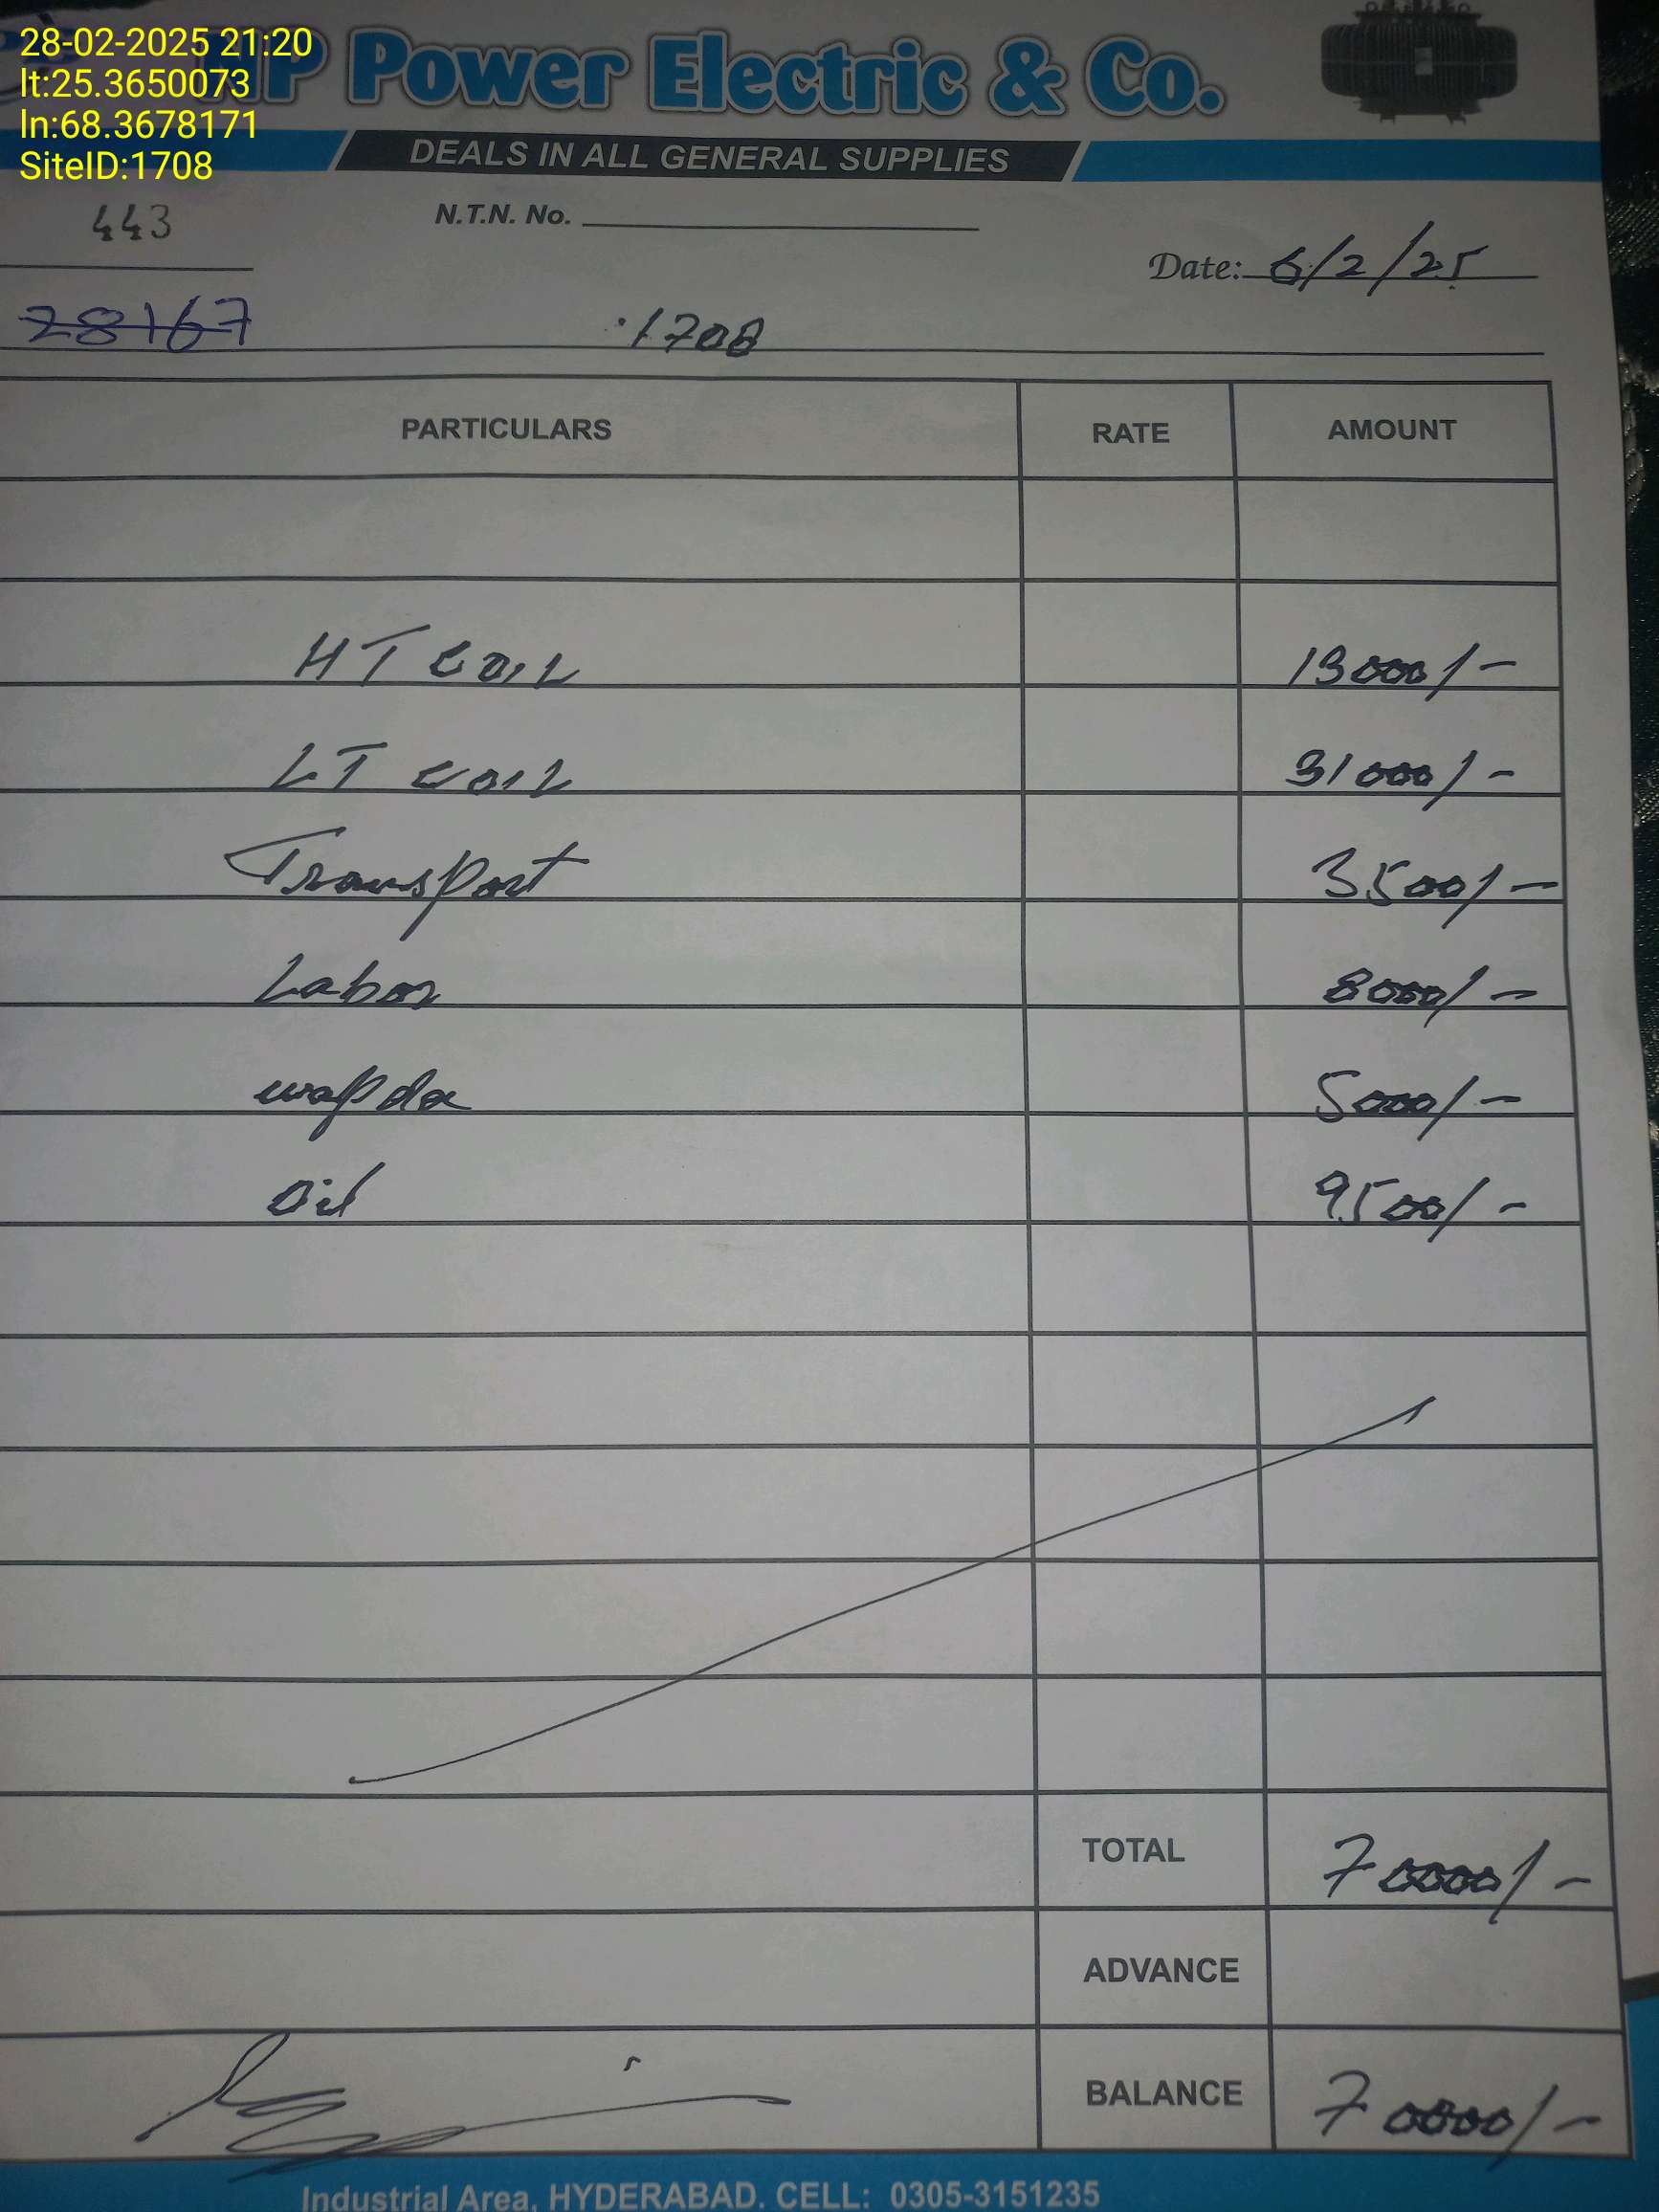 28-02-2025 21:20
lt:25.3650073
ln:68.3678171
SiteID:1708
Power Electric & Co.
DEALS IN ALL GENERAL SUPPLIES
443 N.T.N. No.
Date: 6/2/25
28167 1708
PARTICULARS RATE AMOUNT
HT COIL 13000/-
LT COIL 31000/-
Transport 3500/-
Labor 8000/-
wapda 5000/-
Oil 9500/-
TOTAL 70000/-
ADVANCE
BALANCE 70000/-
Industrial Area, HYDERABAD. CELL: 0305-3151235